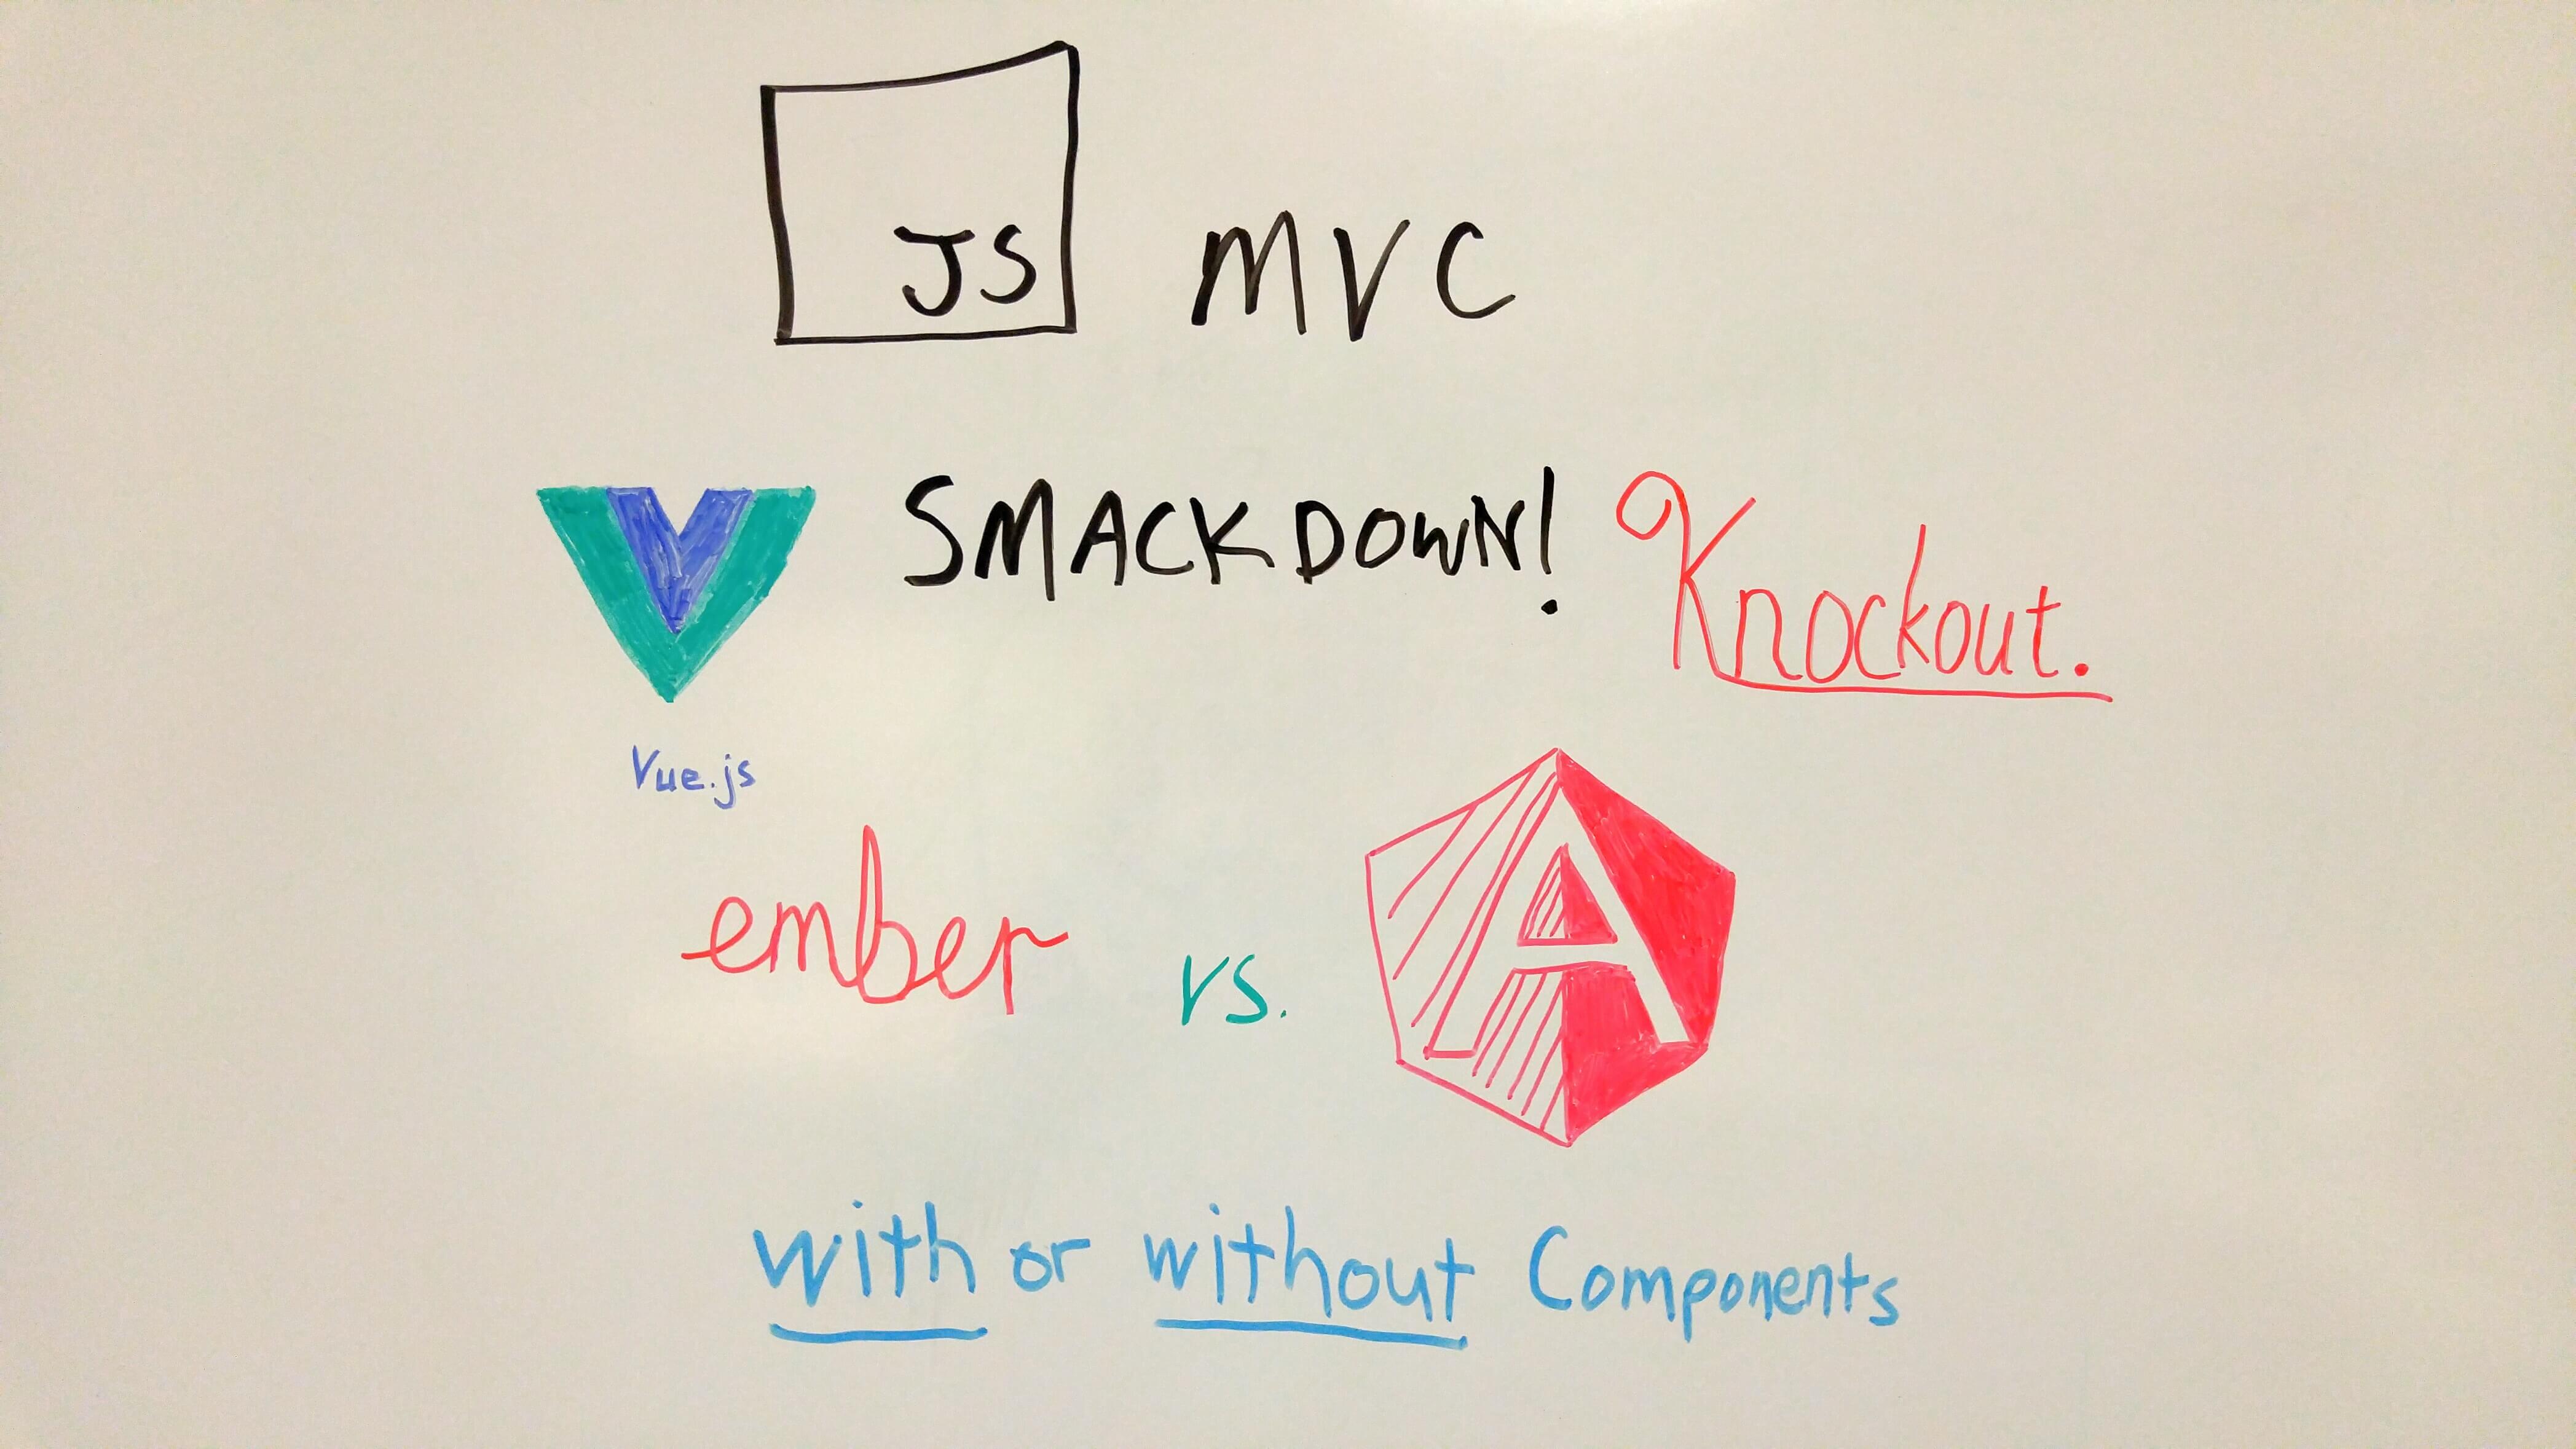 JS MVC
SMACKDOWN!
Knockout.
Vue.js
ember vs. A
with or without Components